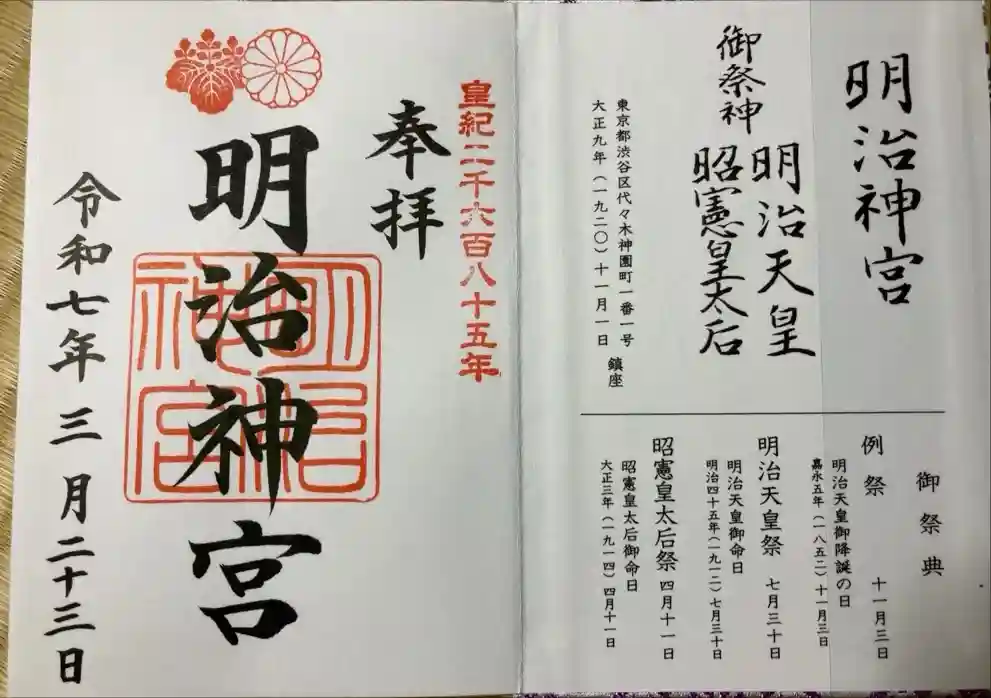 明治神宮
御祭神
明治天皇
昭憲皇太后
東京都渋谷区代々木神園町一番一号
大正九年（一九二〇）十一月一日
鎮座
御祭典
例祭 十一月三日
明治天皇御降誕の日
嘉永五年（一八五二）十一月三日
明治天皇祭 七月三十日
明治天皇御命日
明治四十五年（一九一二）七月三十日
昭憲皇太后祭 四月十一日
昭憲皇太后御命日
大正三年（一九一四）四月十一日
皇紀二千六百八十五年
奉拝
明治神宮
明治
神宮
令和七年三月二十三日